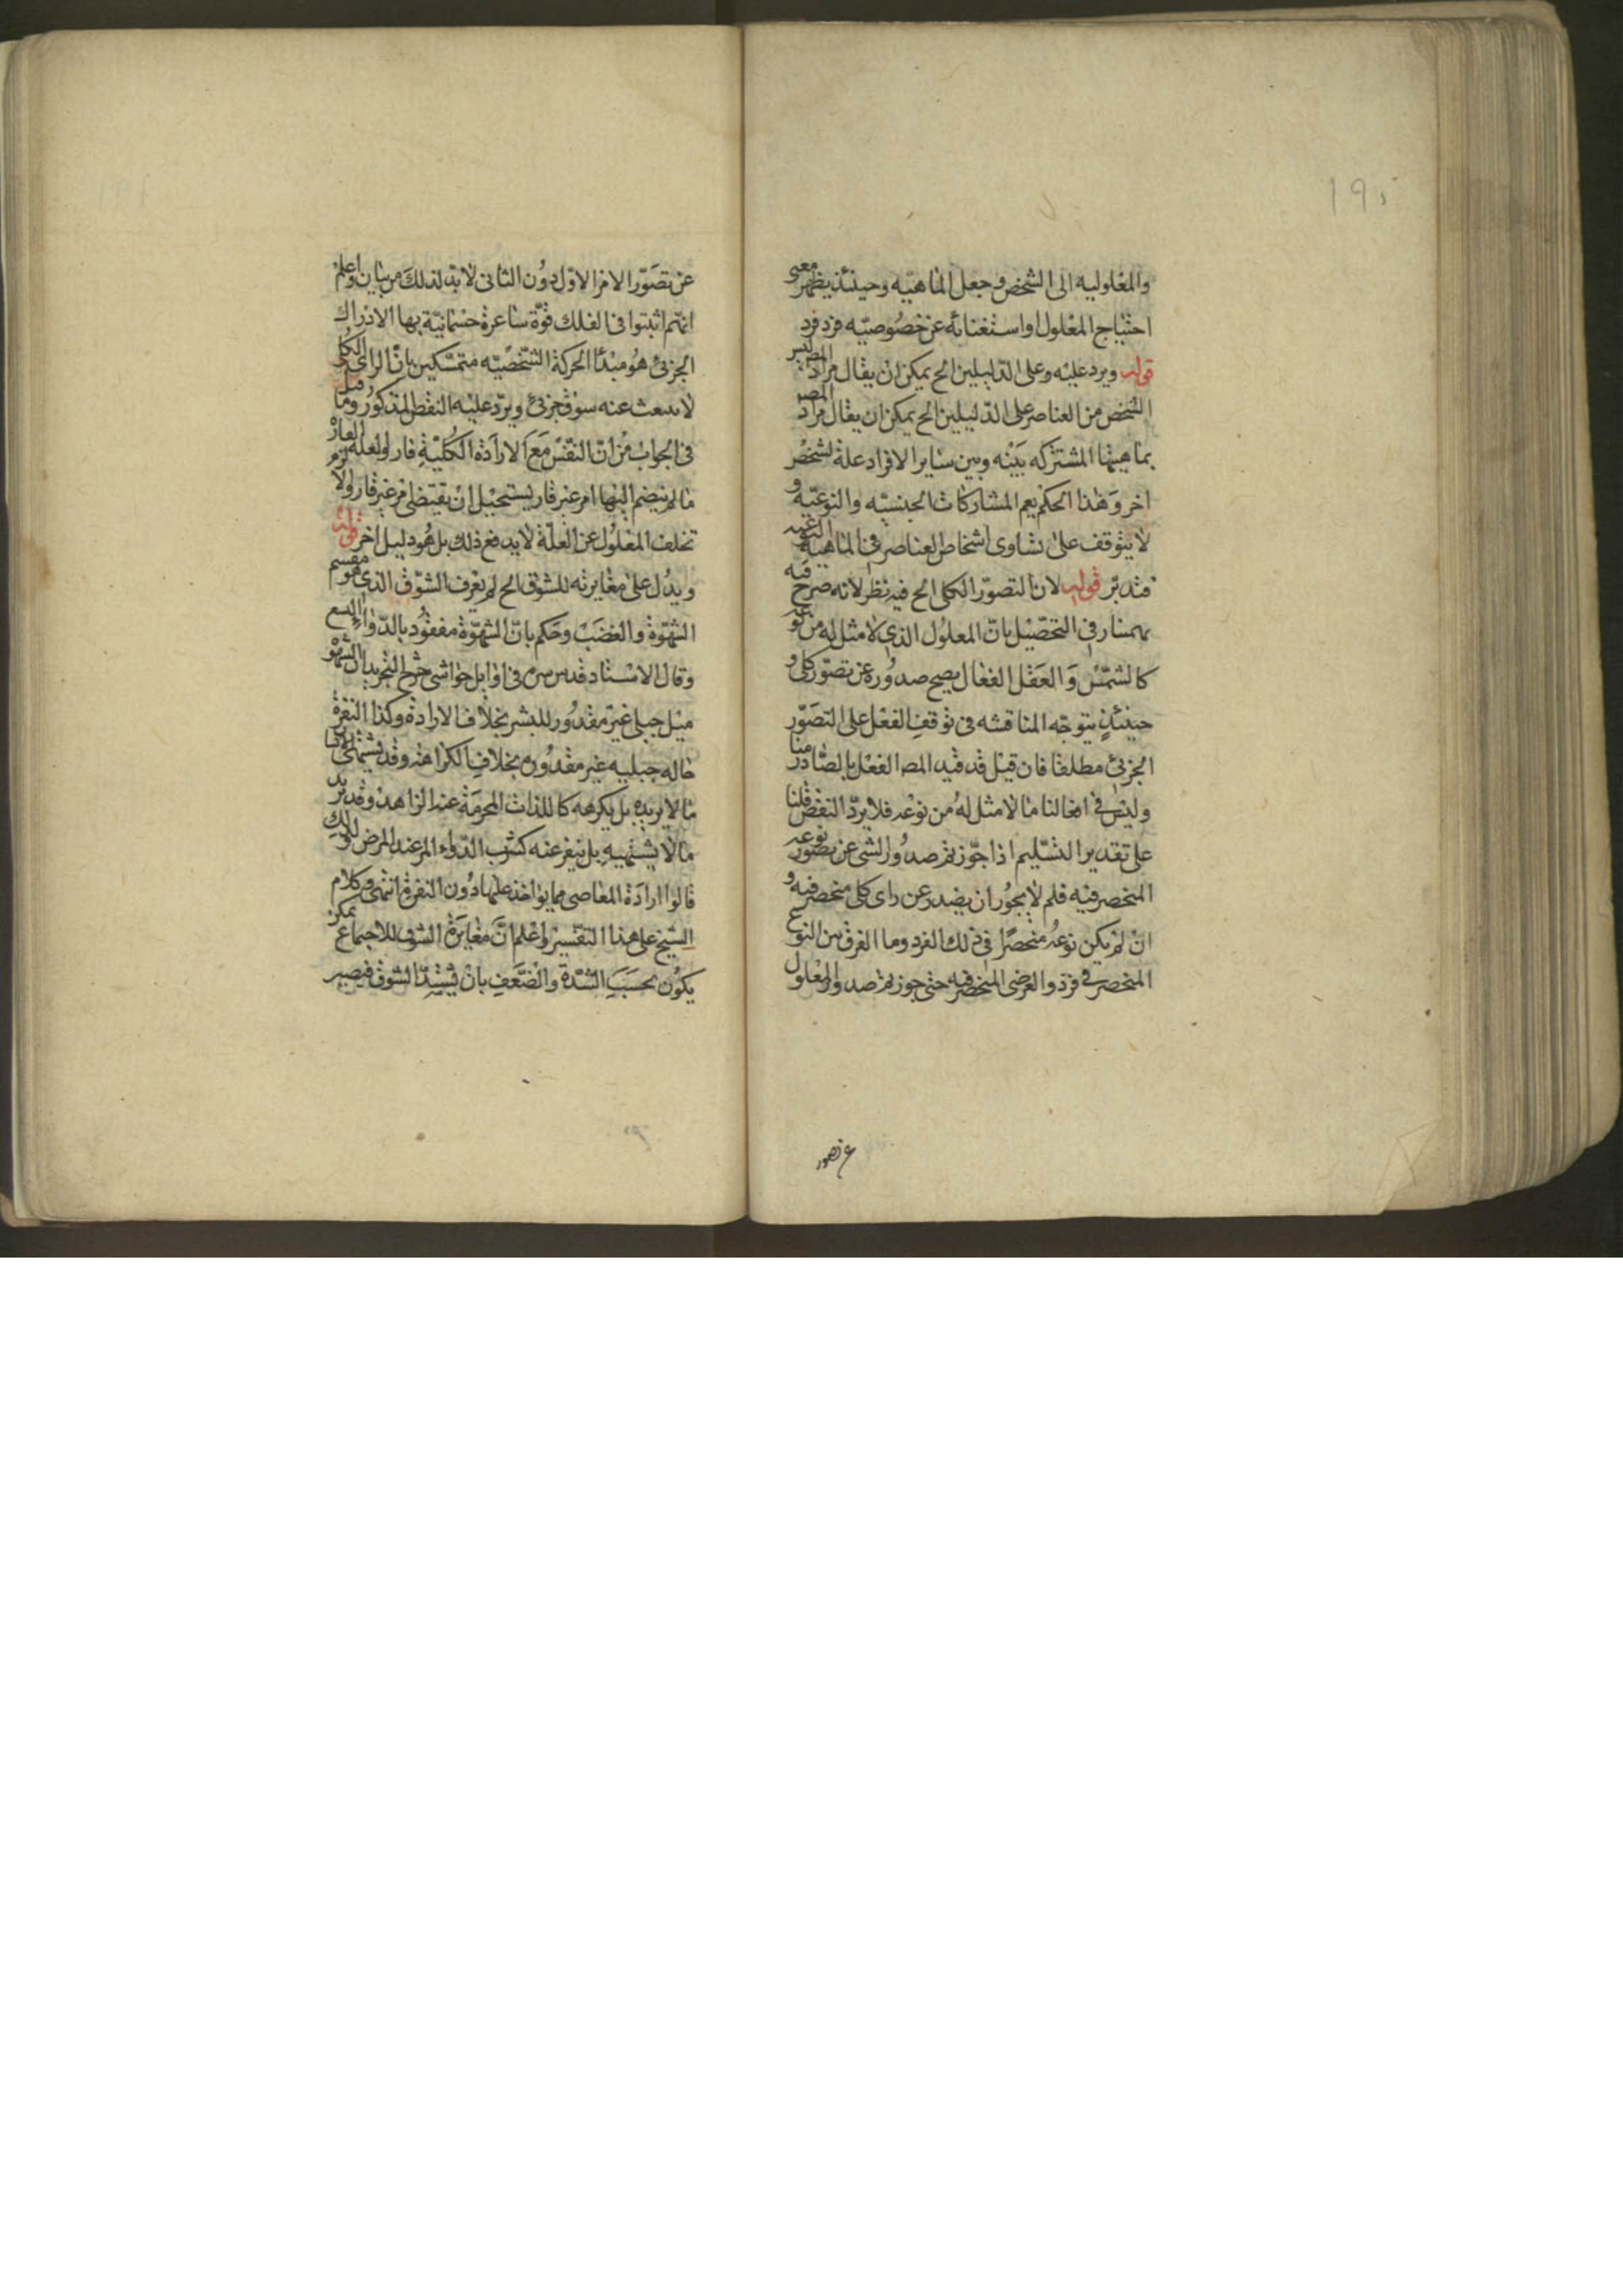 ١٩٥
والمعلوليه الى الشخص وجعل الماهيّه وحينئذ يظهر معنى
احتياج المعلول او استغنائه عن خصوصيّه فرد فرد
قوله ويرد عليه وعلى الدّليلين الخ يمكن ان يقال مراد المص ليس
الشخص من العناصر على الدّليلين الخ يمكن ان يقال مراد المص
بماهيتها المشتركه بينه وبين ساير الافراد علة لشخص
اخر وهذا الحكم يعم المشاركات الجنسيّه والنوعيّه و
لا يتوقف على تساوى اشخاص العناصر فى الماهية النوعيه
فتدبّر قوله لان التصوّر الكلى الخ فيه نظر لانه صرح فيه
بهمنيار فى التحصيل بانّ المعلول الذى لا مثل له من نوعه
كالشمس والعقل الفعال يصح صدوره عن تصوّر كلى و
حينئذٍ يتوجّه المناقشه فى توقف الفعل على التصوّر
الجزئ مطلقا فان قيل قد قيد المص الفعل بالصّادر منا
وليس فى افعالنا ما لا مثل له من نوعه فلا يردّ النقض قلنا
على تقدير التسليم اذا جوّزتم صدور الشى عن تصوّر نوعه
المنحصر فيه فلم لا يجوز ان يصدر عن راى كلى منحصر فيه و
ان لم يكن نوعه منحصرًا فى ذلك الفرد وما الفرق بين النوع
المنحصر فى فرد والعرضى المنحصر فيه حتى جوزتم صدور المعلول
عن تصور
عن تصوّر الامر الاوّل دون الثانى لا بدّ لذلك من بيان واعلم
انهم اثبتوا فى الفلك قوّة شاعرة جسمانيّة بها الادراك
الجزئ هو مبدأ الحركة الشخصيّه متمسّكين بانّ الراى الكلى
لا ينبعث عنه شوق جزئ ويردّ عليه النقض المذكور وما قيل
فى الجواب من انّ النفس مع الارادة الكلية قار او لعله القار
ما لم ينضم اليها امر غير قار يستحيل ان يقتضى امر غير قار ولا لزم
تخلف المعلول عن العلّة لا يدفع ذلك بل هو دليل اخر قوله
ويدل على مغايرته للشوق الخ لم يعرف الشوق الذى هو مقسم
الشهوة والغضب وحكم بانّ الشهوّة مفقود بالدّواء البشع
وقال الاستاد قدس سره فى اوايل حواشى شرح التجريد ان الشهو
ميل جبلى غير مقدور للبشر بخلاف الارادة وكذا النفرة
حاله جبليه غير مقدوره بخلاف الكراهه وقد يشتهى الانسا
ما لا يريده بل يكرهه كاللذات المحرمة عند الزاهد وقد يريد
ما لا يشتهيه بل ينفر عنه كشرب الدّواء المر عند المرض ولذلك
قالوا ارادة المعاصى مما يواخذ عليها دون النفرة انتهى وكلام
الشيخ على هذا التفسير واعلم انّ مغايرة الشوق للاجماع يمكن
يكون بحسب الشدّة والضّعف بان يشتدّ الشوق فيصير